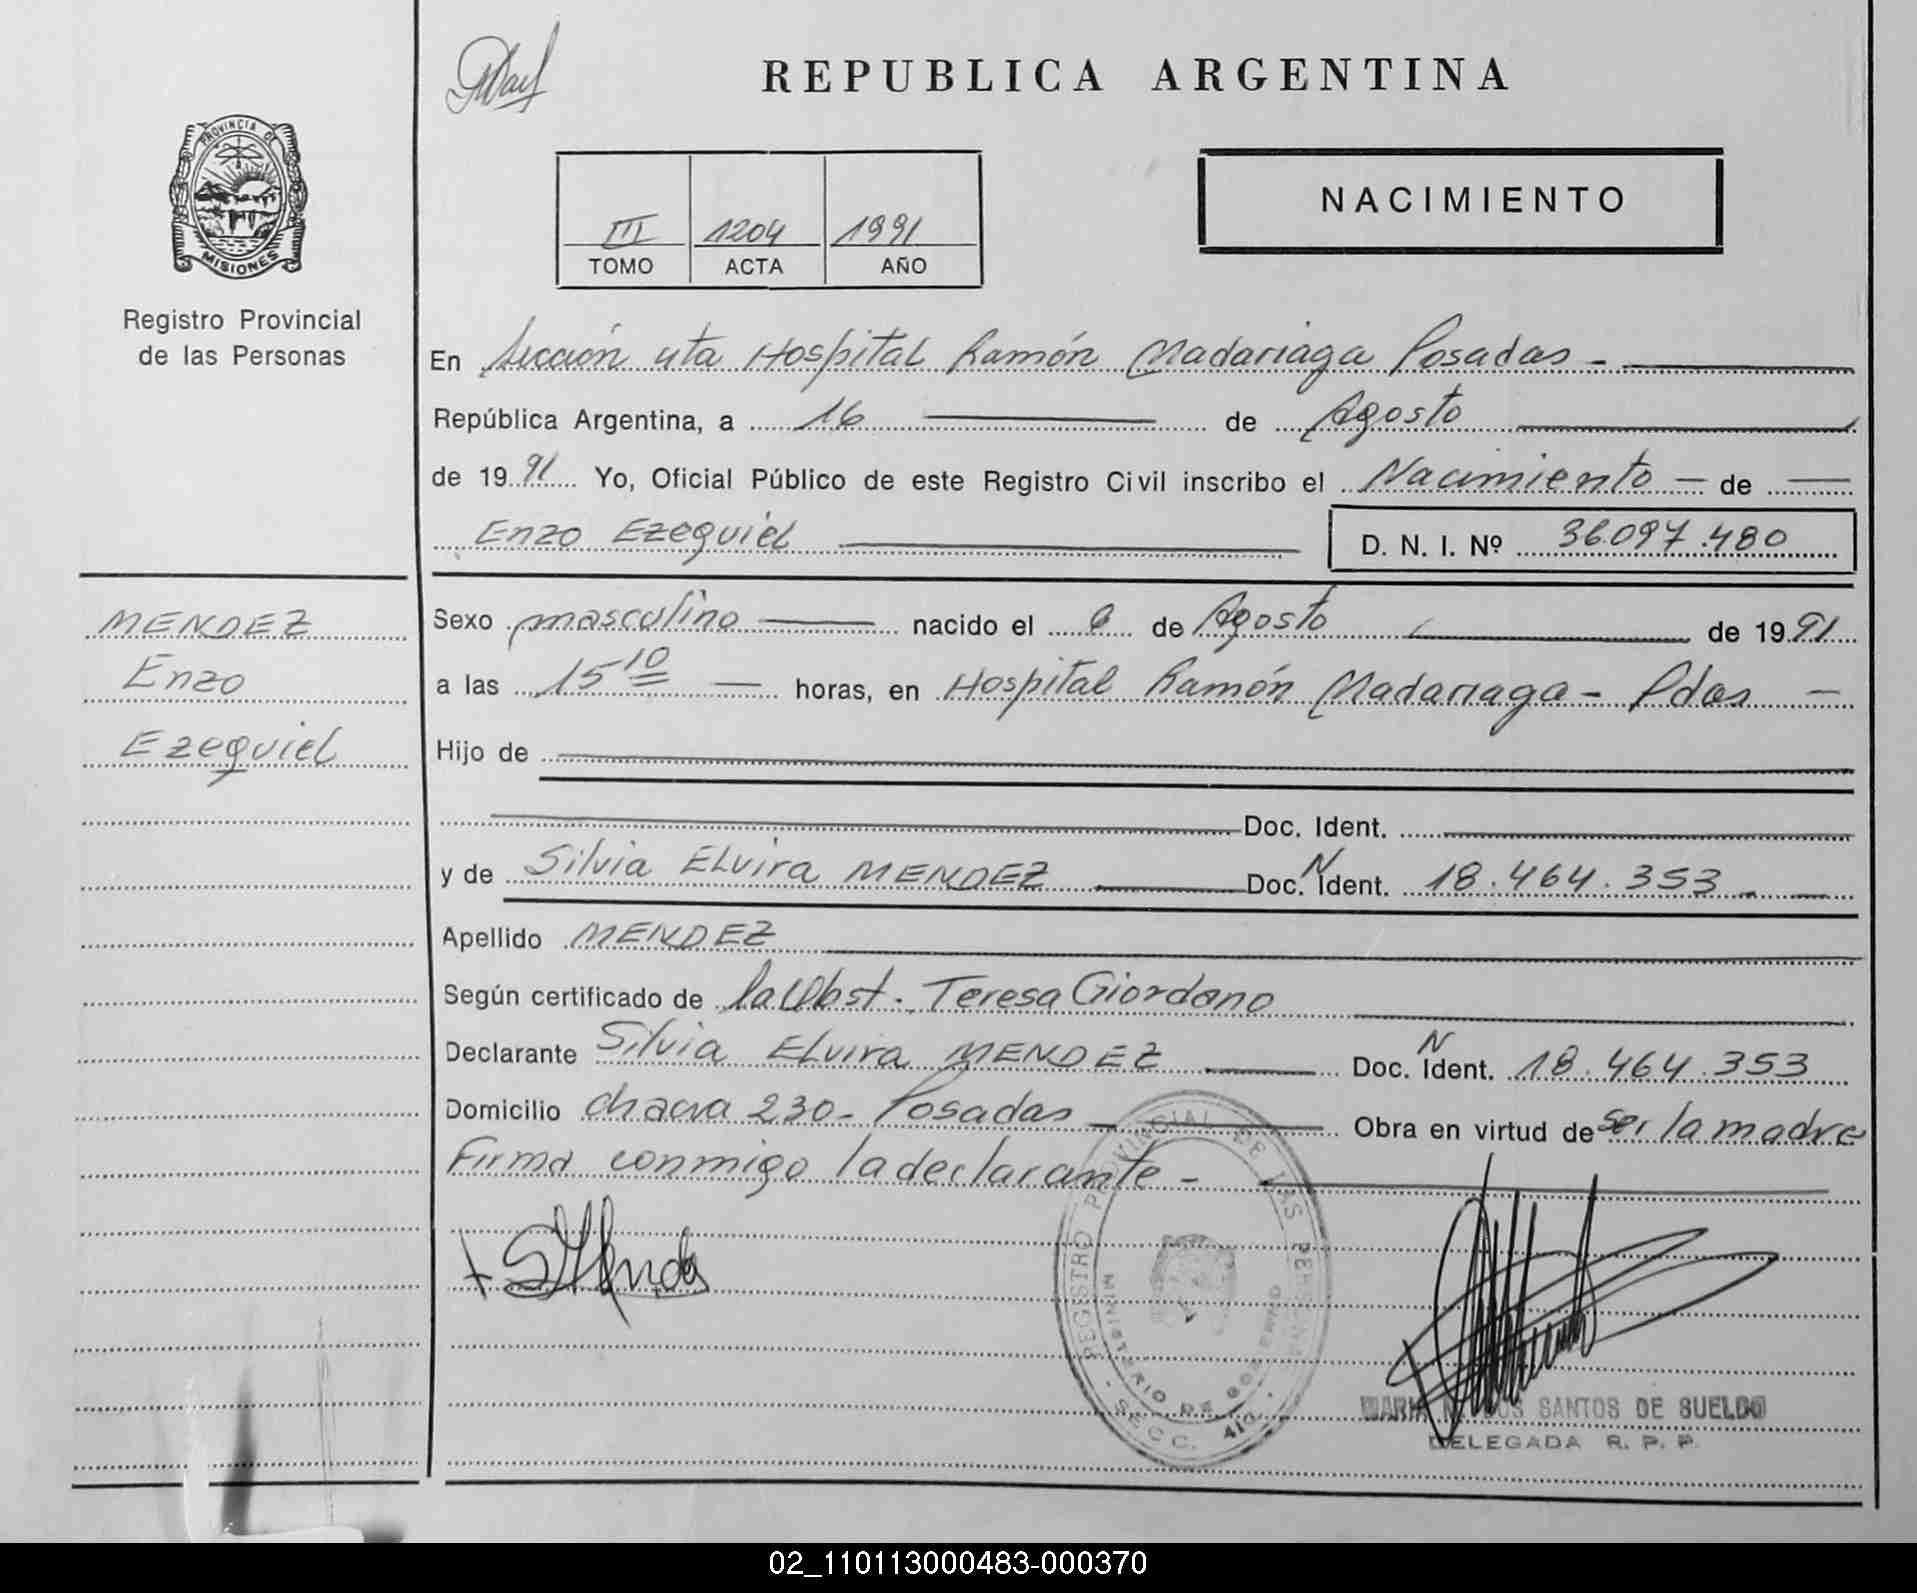 REPUBLICA ARGENTINA
PROVINCIA DE
MISIONES
Registro Provincial
de las Personas
III 1204 1991
TOMO ACTA AÑO
NACIMIENTO
En Sección 4ta Hospital Ramón Madariaga Posadas -
República Argentina, a 16 de Agosto
de 1991 Yo, Oficial Público de este Registro Civil inscribo el Nacimiento - de
Enzo Ezequiel D. N. I. Nº 36.097.480
MENDEZ
Enzo
Ezequiel
Sexo masculino nacido el de Agosto de 1991
a las 15 10 horas, en Hospital Ramón Madariaga - Pdas -
Hijo de
Doc. Ident.
y de Silvia Elvira MENDEZ Doc. N Ident. 18.464.353
Apellido MENDEZ
Según certificado de la Obst. Teresa Giordano
Declarante Silvia Elvira MENDEZ Doc. N Ident. 18.464.353
Domicilio chacra 230 - Posadas Obra en virtud de ser la madre
Firma conmigo la declarante -
REGISTRO PROVINCIAL DE LAS PERSONAS
MINISTERIO DE GOBIERNO
SECC. 4ta
DOS SANTOS DE SUELDO
DELEGADA R. P. P.
02_110113000483-000370